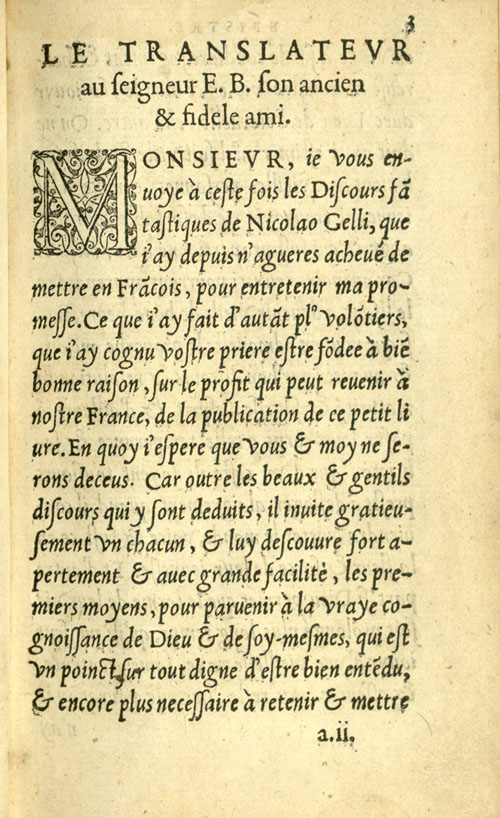 3
LE TRANSLATEVR
au ſeigneur E. B. ſon ancien
& fidele ami.
MONSIEVR, ie vous en-
uoye à ceſte fois les Diſcours fã
taſtiques de Nicolao Gelli, que
i'ay depuis n'agueres acheué de
mettre en Frãcois, pour entretenir ma pro-
meſſe. Ce que i'ay fait d'autãt plꝰ volõtiers,
que i'ay cognu voſtre priere eſtre fõdee à biẽ
bonne raiſon, ſur le profit qui peut reuenir à
noſtre France, de la publication de ce petit li
ure. En quoy i'eſpere que vous & moy ne ſe-
rons deceus. Car outre les beaux & gentils
diſcours qui y ſont deduits, il inuite gratieu-
ſement vn chacun, & luy deſcouure fort a-
pertement & auec grande facilité, les pre-
miers moyens, pour paruenir à la vraye co-
gnoiſſance de Dieu & de ſoy-meſmes, qui eſt
vn poinct ſur tout digne d'eſtre bien entẽdu,
& encore plus neceſſaire à retenir & mettre
a.ii.